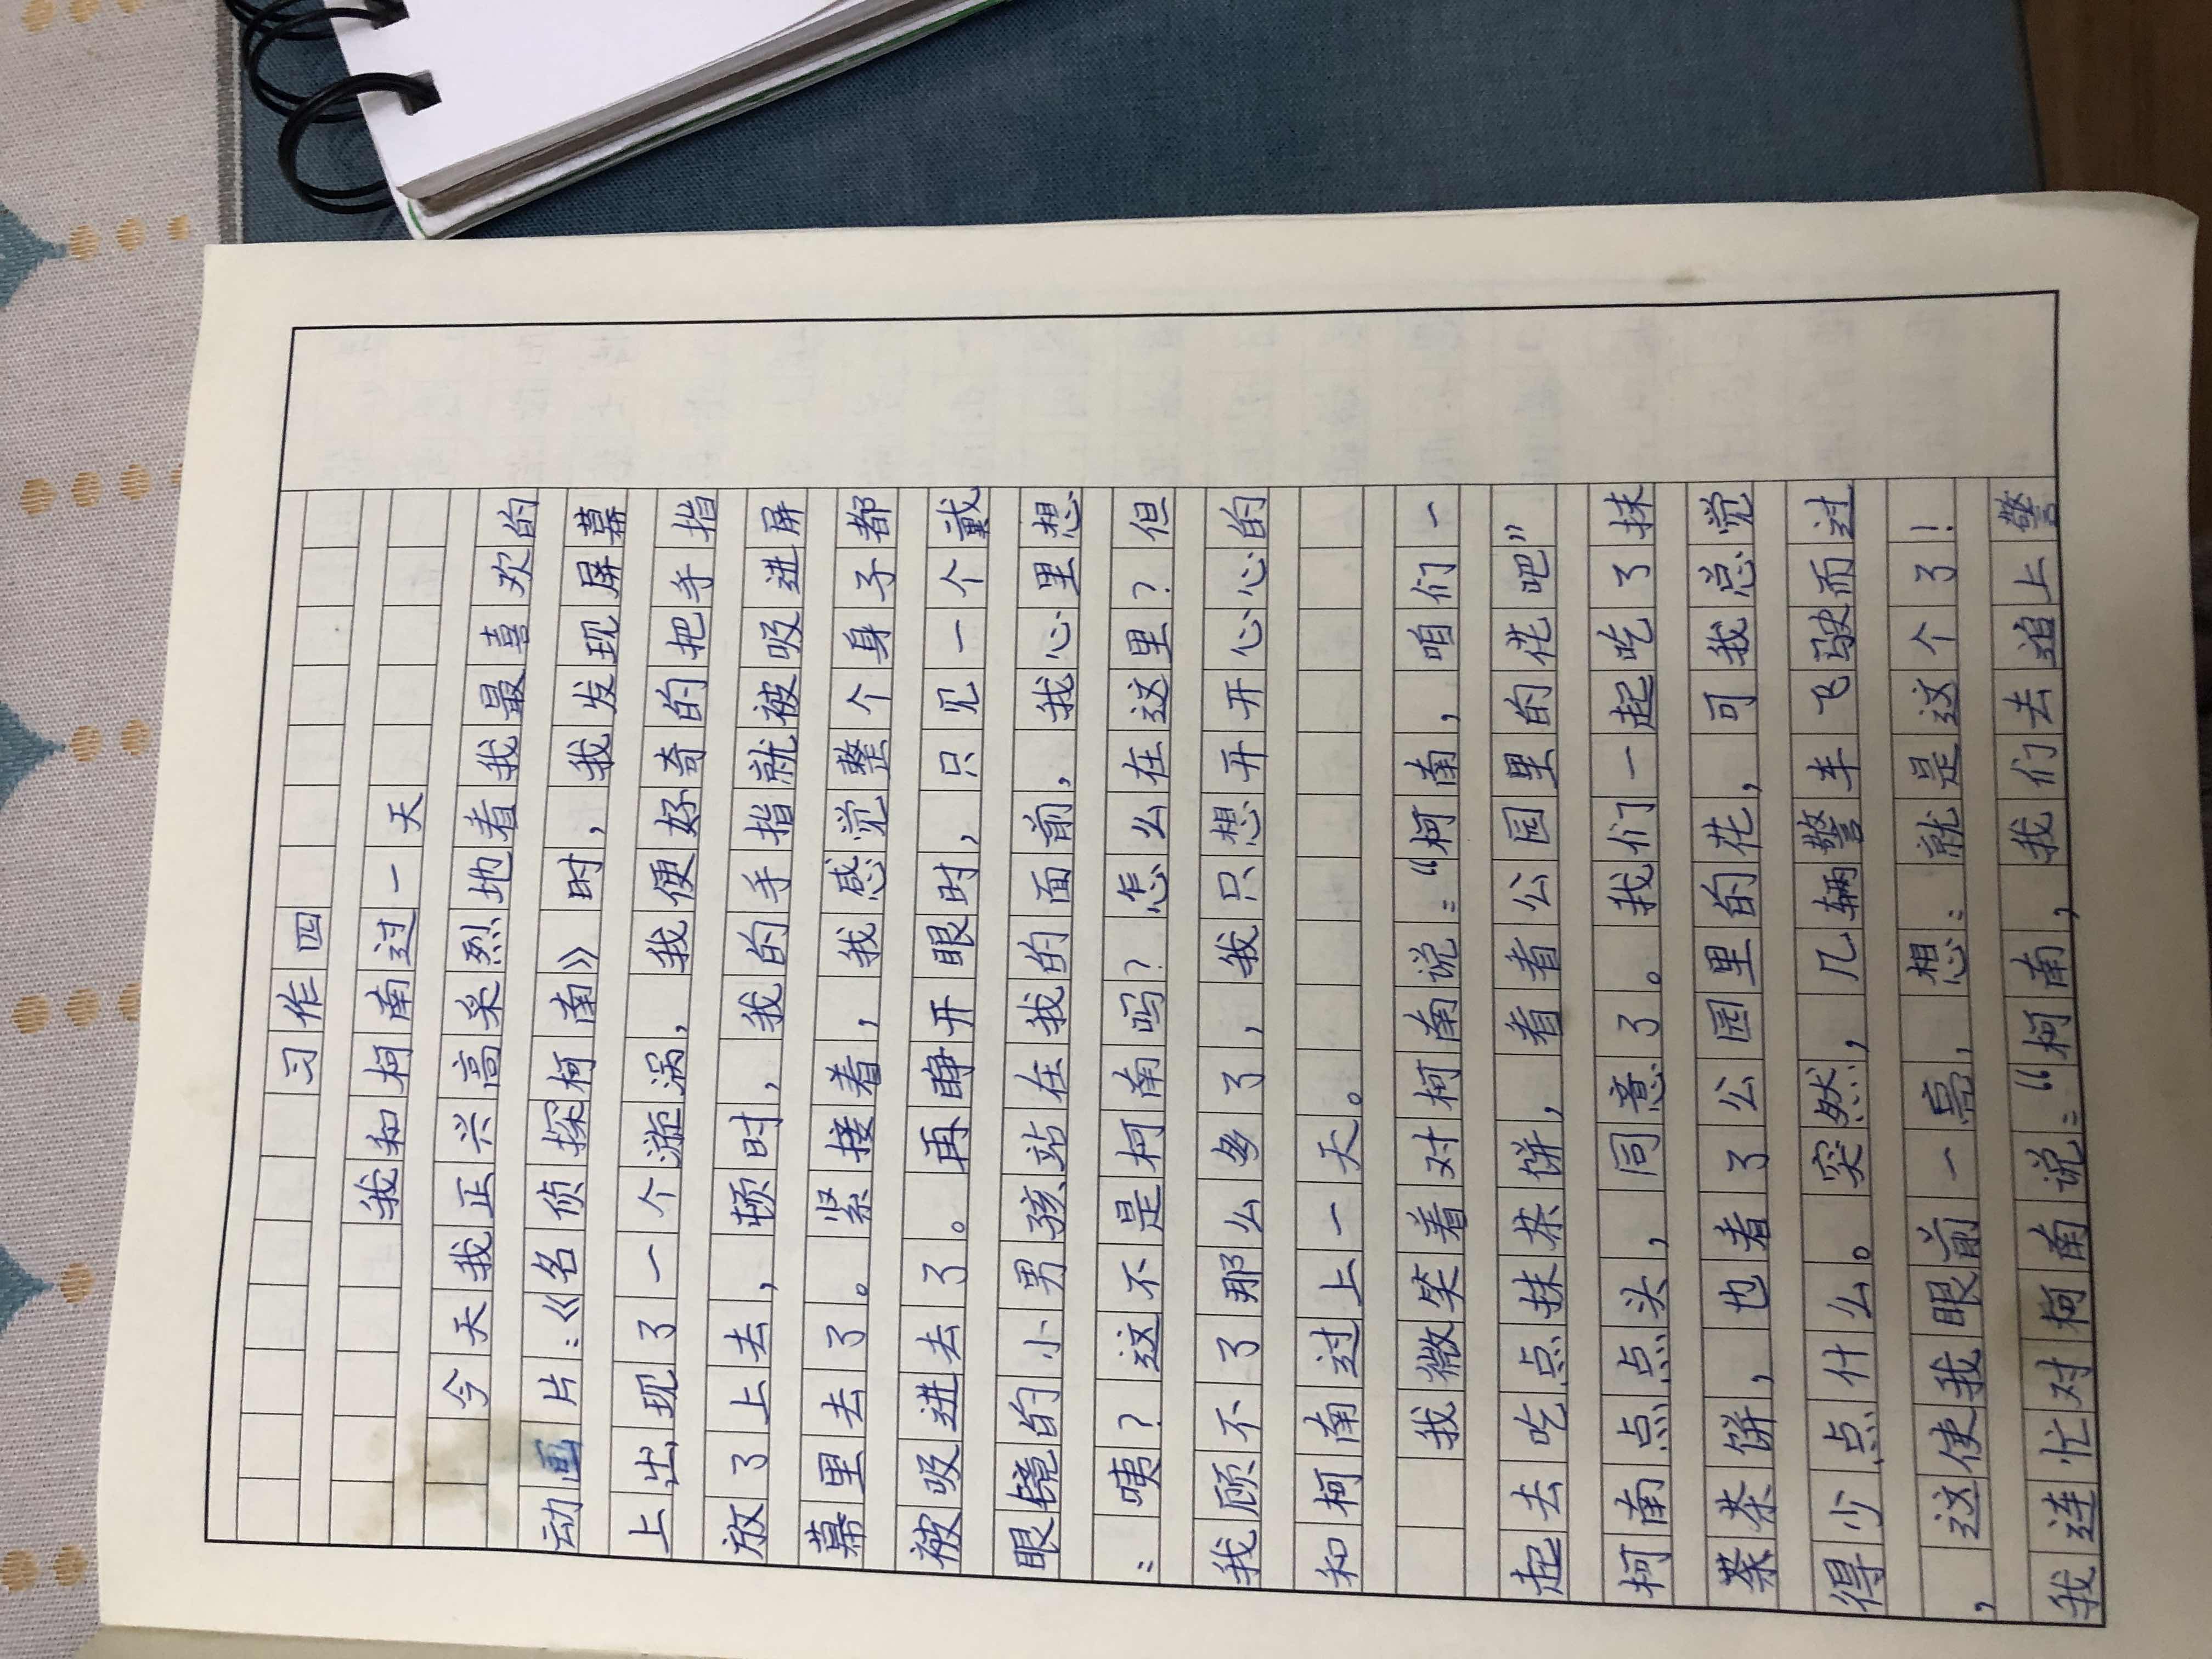 习作四
我和柯南过一天
今天我正兴高采烈地看我最喜欢的
动画片:《名侦探柯南》时，我发现屏幕
上出现了一个漩涡，我便好奇的把手指
放了上去，顿时，我的手指就被吸进屏
幕里去了。紧接着，我感觉整个身子都
被吸进去了。再睁开眼时，只见一个戴
眼镜的小男孩站在我的面前，我心里想
:咦？这不是柯南吗？怎么在这里？但
我顾不了那么多了，我只想开开心心的
和柯南过上一天。
我微笑着对柯南说:“柯南，咱们一
起去吃点抹茶饼，看看公园里的花吧”
柯南点点头，同意了。我们一起吃了抹
茶茶饼，也看了公园里的花，可我总觉
得少点什么。突然，几辆警车飞驶而过
，这使我眼前一亮，想:就是这个了！
我连忙对柯南说:“柯南，我们去追上警